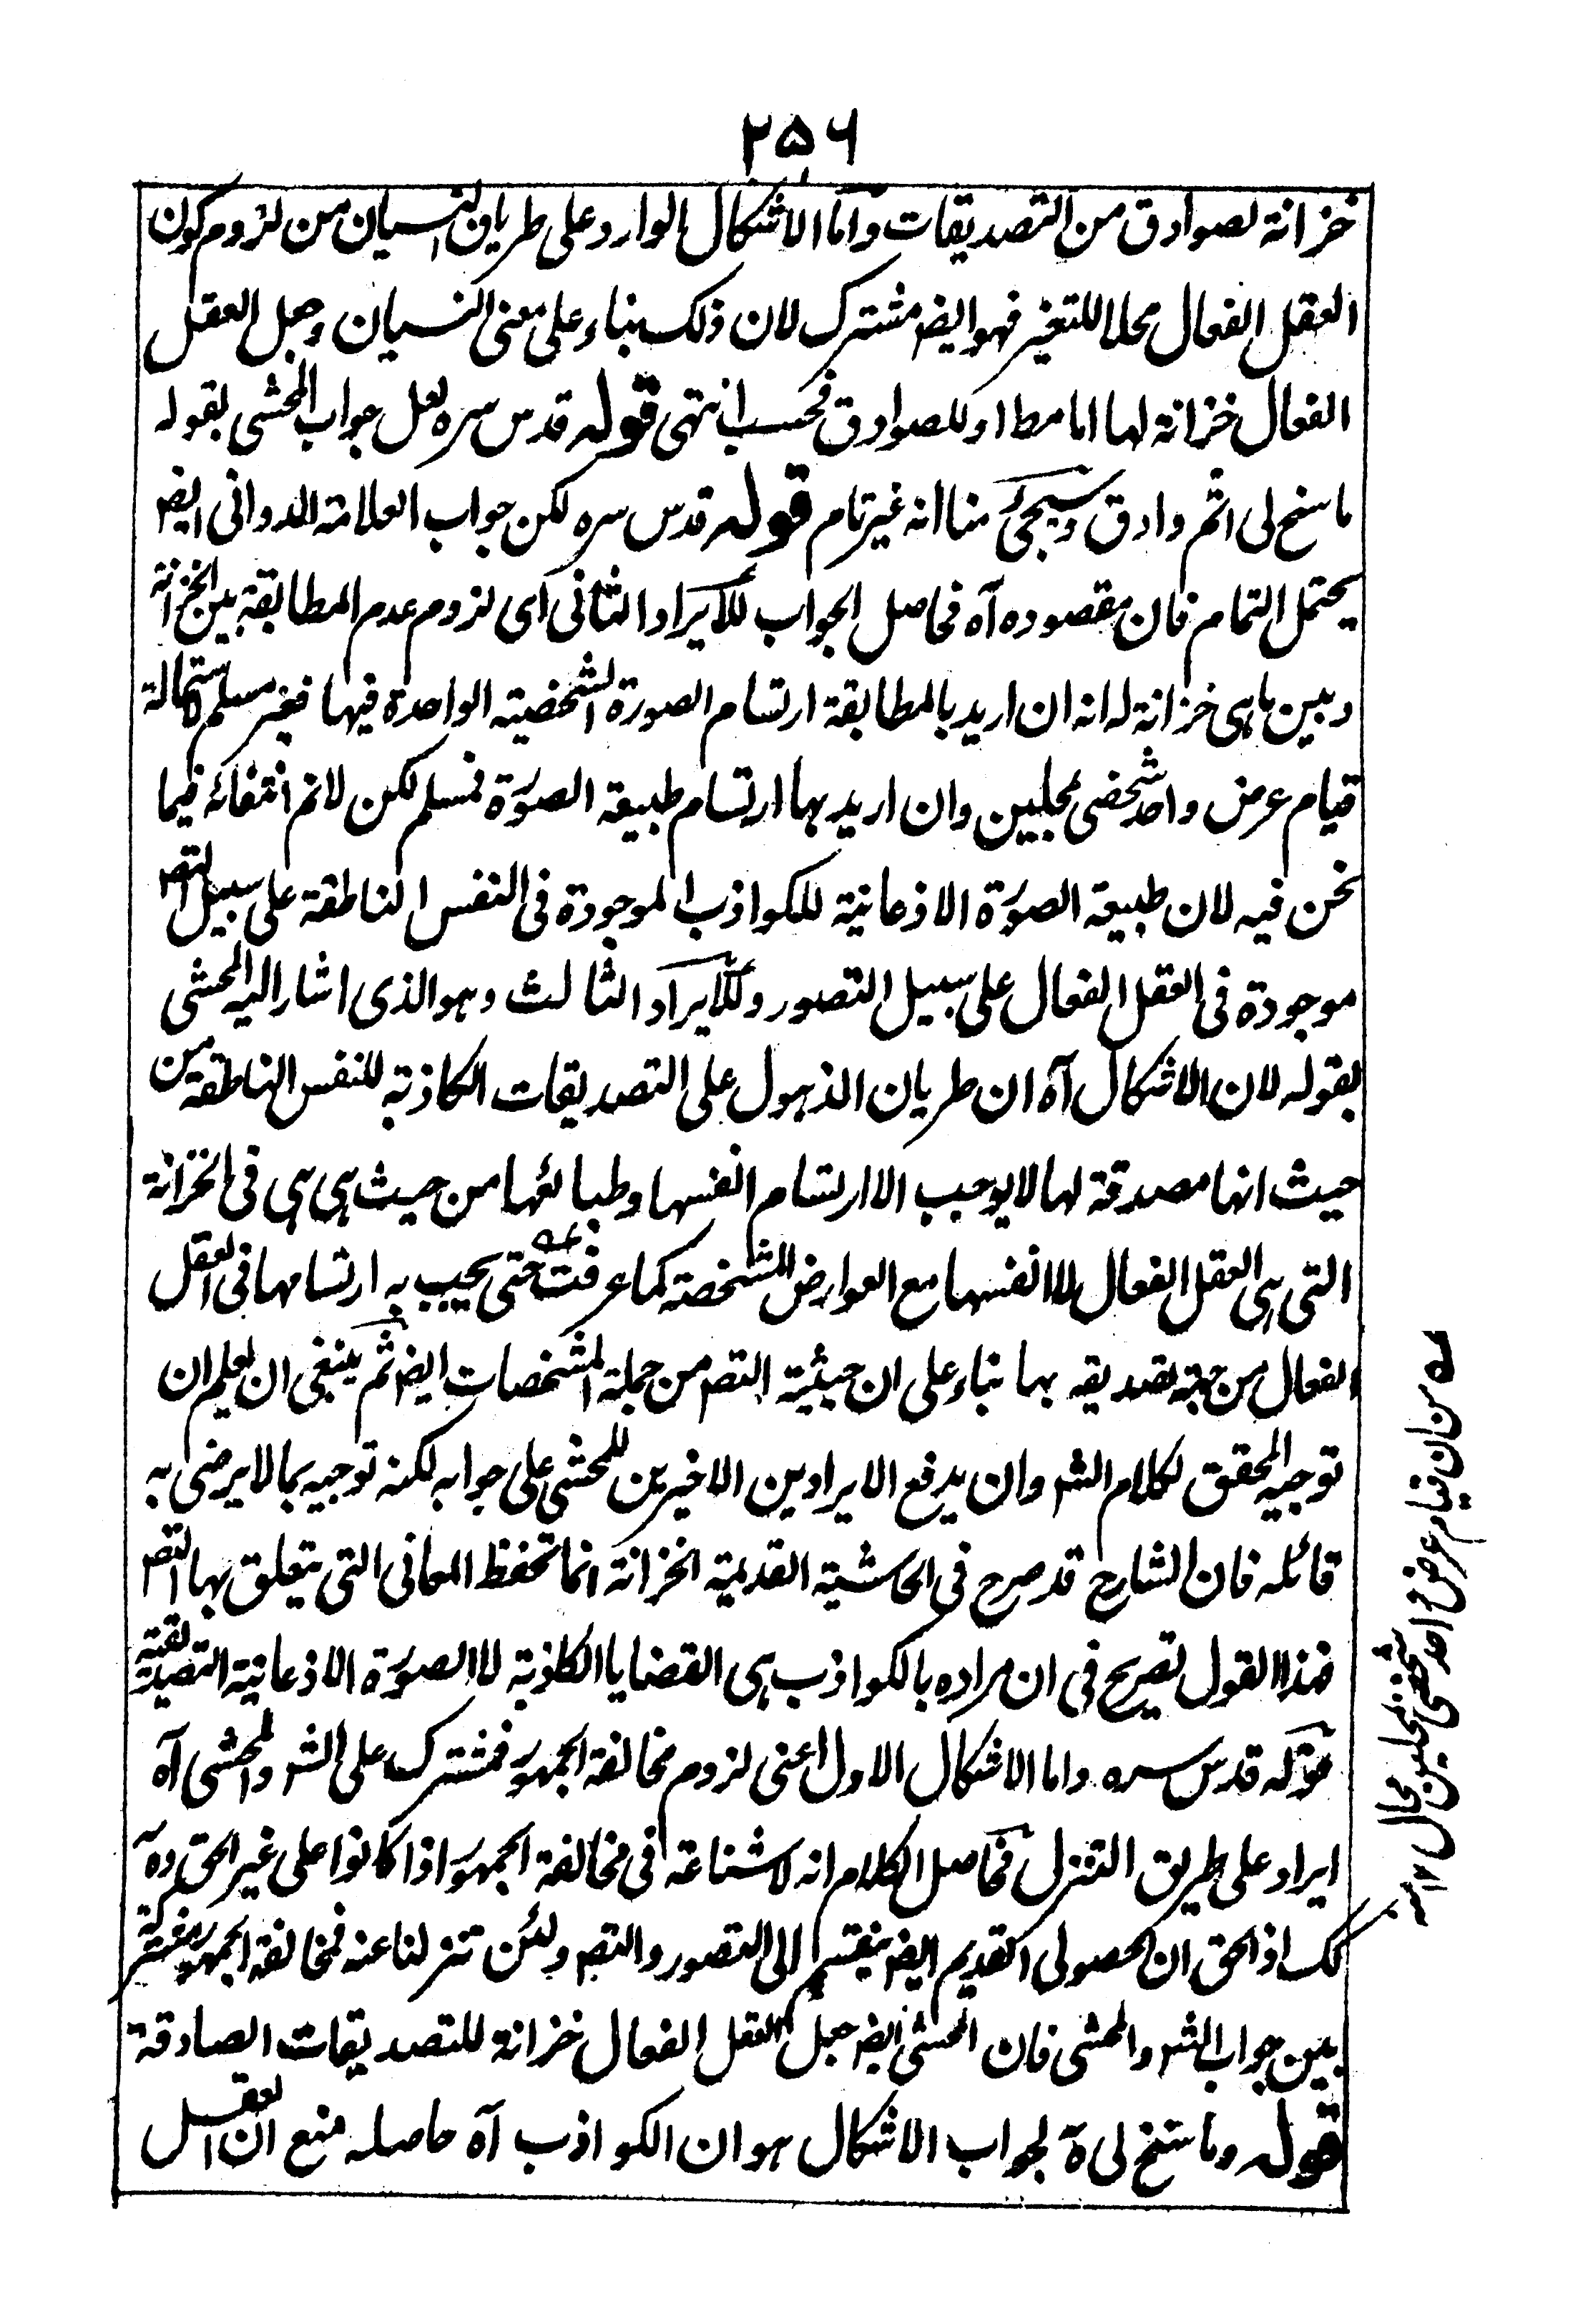 ۲۵۶
خزانة لصوادق من التصديقات واما الاشكال الوارد على طريان النسيان من لزوم كون
العقل الفعال محلا للتغير فهو ايضر مشترك لان ذلك بناء على معنى النسيان وجعل العقل
الفعال خزانة لها اما مطا او للصوادق فحسب انتهى قوله قدس سره لعل جواب المحشى بقوله
ما سنح لى اتم وادق وسيجئ منا انه غير تام قوله قدس سره لكن جواب العلامة الدوانى ايضر
يحتمل التمام فان مقصوده آه فحاصل الجواب للايراد الثانى اى لزوم عدم المطابقة بين الخزانة
وبين ما هى خزانة له انه ان اريد بالمطابقة ارتسام الصورة الشخصية الواحدة فيها فغير مسلم لاستحالة
قيام عرض واحد شخصى بمحلين وان اريد بها ارتسام طبيعة الصورة فمسلم لكن لانم انتفائه فيما
نحن فيه لان طبيعة الصورة الاذعانية للكواذب الموجودة فى النفس الناطقة على سبيل التصر
موجودة فى العقل الفعال على سبيل التصور وللايراد الثالث وهو الذى اشار اليه المحشى
بقوله لان الاشكال آه ان طريان الذهول على التصديقات الكاذبة للنفس الناطقة من
حيث انها مصدقة لها لا يوجب الا ارتسام انفسها وطبائعها من حيث هى هى فى الخزانة
التى هى العقل الفعال لا انفسها مع العوارض المشخصة كما عرفت حتى يجب به ارتسامها فى العقل
الفعال من جهة تصديقه بها بناء على ان حيثية التصر من جملة المشخصات ايضر ثم ينبغى ان يعلم ان
توجيه المحقق لكلام الشر وان يدفع الايرادين الاخيرين للمحشى على جوابه لكنه توجيه بما لا يرضى به
قائله فان الشارح قد صرح فى الحاشية القديمة الخزانة انما تحفظ المعانى التى يتعلق بها التصر
فهذا القول تصريح فى ان مراده بالكواذب هى القضايا الكاذبة لا الصورة الاذعانية التصديقية
قوله قدس سره واما الاشكال الاول اعنى لزوم مخالفة الجمهور فمشترك على الشر والمحشى آه
ايراد على طريق التنزل فحاصل الكلام انه لا شناعة فى مخالفة الجمهور اذا كانوا على غير الحق وه
كك اذ الحق ان الحصولى القديم ايضر ينقسم الى التصور والتصر ولئن تنزلنا عنه فمخالفة الجمهور مشتركة
بين جواب الشر والمحشى فان المحشى ايضر جعل العقل الفعال خزانة للتصديقات الصادقة
قوله وما سنح لى ه لجواب الاشكال هو ان الكواذب آه حاصله منع ان العقل
من ان قيام عرض واحد شخصى بمحلين محال ١٢